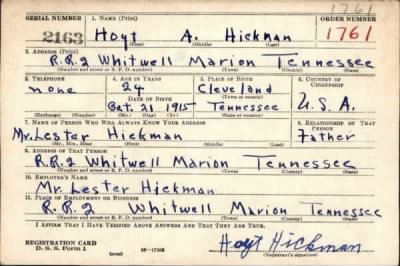 1761
SERIAL NUMBER 1. NAME (Print) ORDER NUMBER
2163 Hoyt A. Hickman 1761
(First) (Middle) (Last)
2. ADDRESS (Print)
R.R.2 Whitwell Marion Tennessee
(Number and street or R. F. D. number) (Town) (County) (State)
3. TELEPHONE 4. AGE IN YEARS 5. PLACE OF BIRTH 6. COUNTRY OF CITIZENSHIP
none 24 Cleveland
(Town or county)
DATE OF BIRTH
Oct. 21 1915 Tennessee U.S.A.
(Exchange) (Number) (Mo.) (Day) (Yr.) (State or country)
7. NAME OF PERSON WHO WILL ALWAYS KNOW YOUR ADDRESS 8. RELATIONSHIP OF THAT PERSON
Mr. Lester Hickman Father
(Mr., Mrs., Miss) (First) (Middle) (Last)
9. ADDRESS OF THAT PERSON
R.R.2 Whitwell Marion Tennessee
(Number and street or R. F. D. number) (Town) (County) (State)
10. EMPLOYER'S NAME
Mr. Lester Hickman
11. PLACE OF EMPLOYMENT OR BUSINESS
R.R.2 Whitwell Marion Tennessee
(Number and street or R. F. D. number) (Town) (County) (State)
I AFFIRM THAT I HAVE VERIFIED ABOVE ANSWERS AND THAT THEY ARE TRUE.
REGISTRATION CARD
D. S. S. Form 1 (over) Hoyt Hickman
(Registrant's signature)